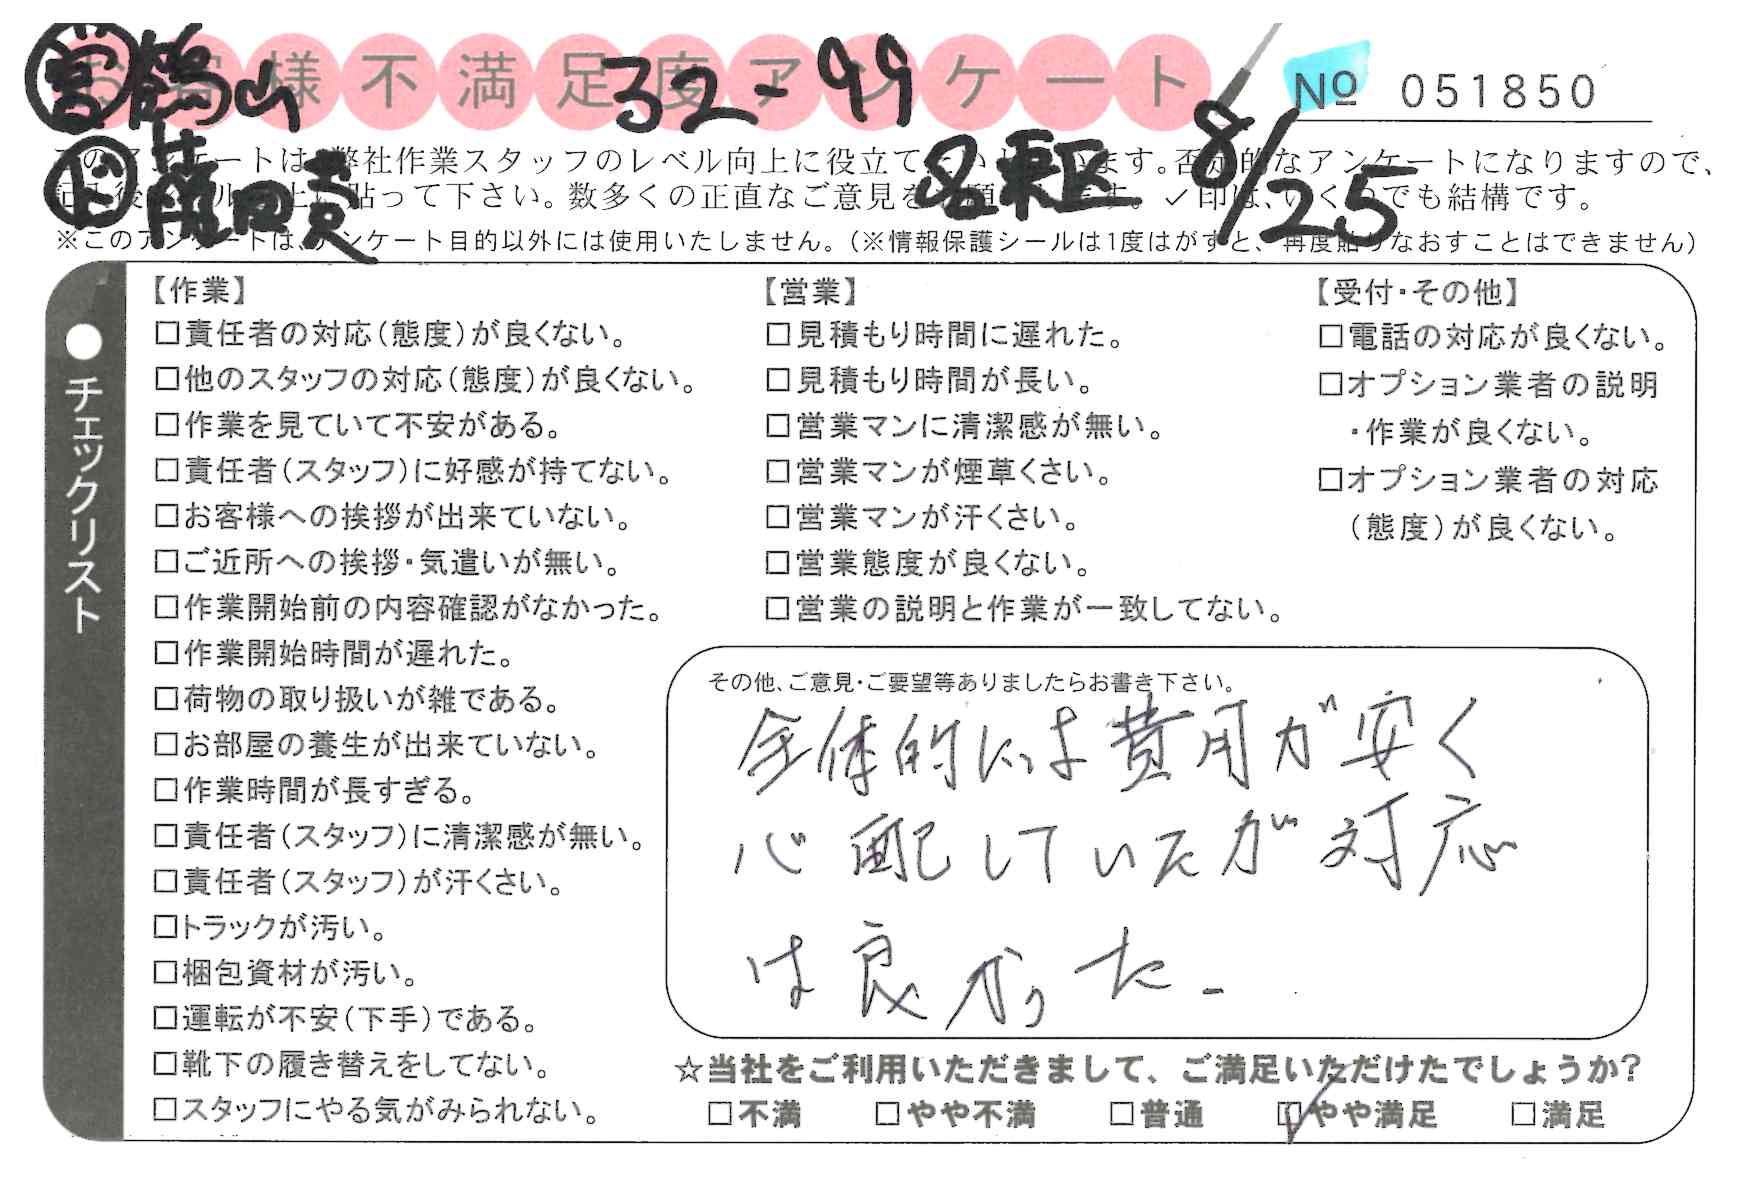 お客様不満足度アンケート
営 鶴山 32-99
№ 051850
ド 藤田 名東区 8/25
このアンケートは、弊社作業スタッフのレベル向上に役立て います。否定的なアンケートになりますので、
後 貼って下さい。数多くの正直なご意見を 願 ます。✓印は、いくつでも結構です。
※このアンケートは、アンケート目的以外には使用いたしません。(※情報保護シールは1度はがすと、再度貼りなおすことはできません)
●チェックリスト
【作業】
□責任者の対応(態度)が良くない。
□他のスタッフの対応(態度)が良くない。
□作業を見ていて不安がある。
□責任者(スタッフ)に好感が持てない。
□お客様への挨拶が出来ていない。
□ご近所への挨拶・気遣いが無い。
□作業開始前の内容確認がなかった。
□作業開始時間が遅れた。
□荷物の取り扱いが雑である。
□お部屋の養生が出来ていない。
□作業時間が長すぎる。
□責任者(スタッフ)に清潔感が無い。
□責任者(スタッフ)が汗くさい。
□トラックが汚い。
□梱包資材が汚い。
□運転が不安(下手)である。
□靴下の履き替えをしてない。
□スタッフにやる気がみられない。
【営業】
□見積もり時間に遅れた。
□見積もり時間が長い。
□営業マンに清潔感が無い。
□営業マンが煙草くさい。
□営業マンが汗くさい。
□営業態度が良くない。
□営業の説明と作業が一致してない。
【受付・その他】
□電話の対応が良くない。
□オプション業者の説明
・作業が良くない。
□オプション業者の対応
(態度)が良くない。
その他、ご意見・ご要望等ありましたらお書き下さい。
全体的には費用が安く
心配していたが対応
は良かった。
☆当社をご利用いただきまして、ご満足いただけたでしょうか?
□不満 □やや不満 □普通 ☑やや満足 □満足